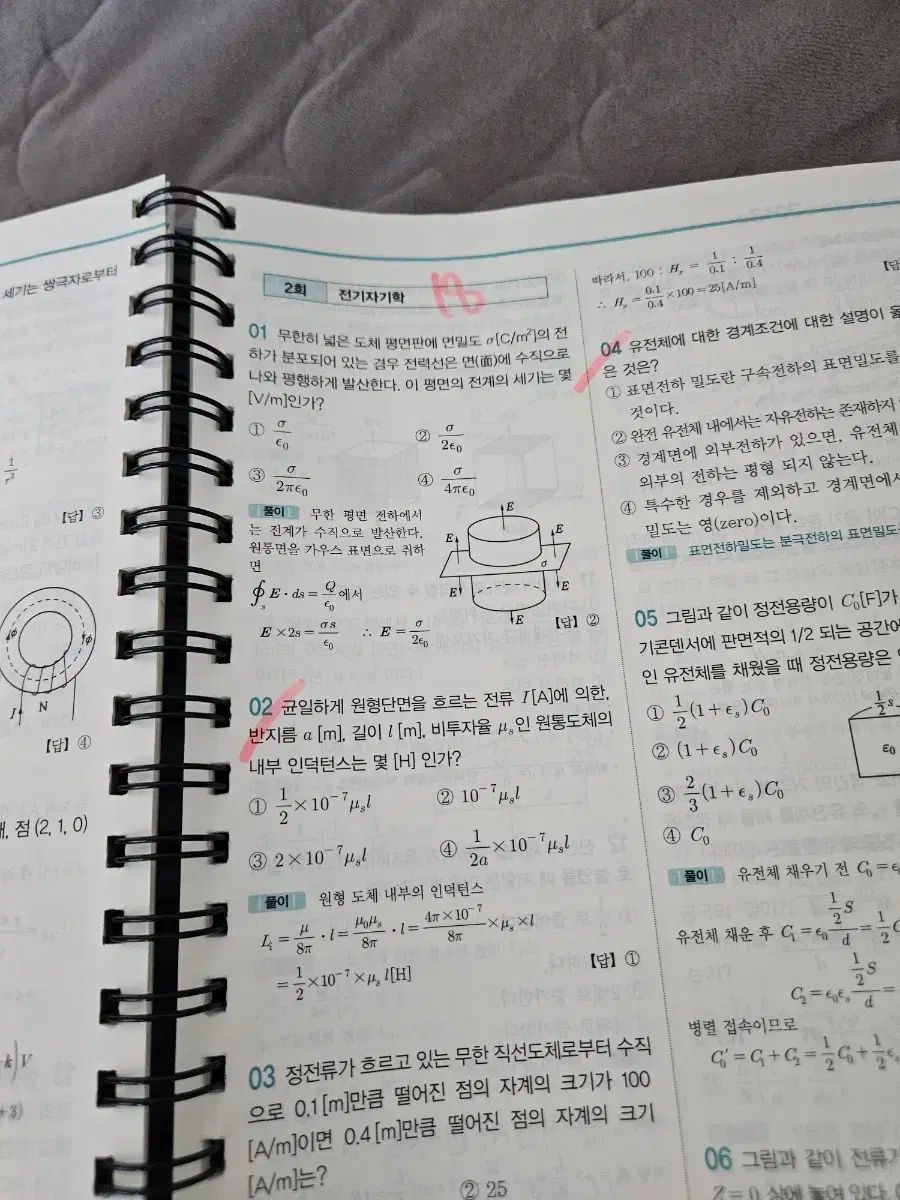 세기는 쌍극자로부터
1
r³
【답】 ③
I N
【답】 ④
점 (2, 1, 0)
2회 전기자기학
01 무한히 넓은 도체 평면판에 면밀도 σ[C/m²]의 전
하가 분포되어 있는 경우 전력선은 면(面)에 수직으로
나와 평행하게 발산한다. 이 평면의 전계의 세기는 몇
[V/m]인가?
① σ/ϵ₀ ② σ/2ϵ₀
③ σ/2πϵ₀ ④ σ/4πϵ₀
풀이 무한 평면 전하에서
는 전계가 수직으로 발산한다.
원통면을 가우스 표면으로 취하
면
∮ₛ E · ds = Q/ϵ₀ 에서
E × 2s = σs/ϵ₀ ∴ E = σ/2ϵ₀
E
E E
σ
E E
E
【답】 ②
02 균일하게 원형단면을 흐르는 전류 I[A]에 의한,
반지름 a[m], 길이 l[m], 비투자율 μₛ인 원통도체의
내부 인덕턴스는 몇 [H] 인가?
① 1/2 × 10⁻⁷μₛl ② 10⁻⁷μₛl
③ 2 × 10⁻⁷μₛl ④ 1/2a × 10⁻⁷μₛl
풀이 원형 도체 내부의 인덕턴스
Lᵢ = μ/8π · l = μ₀μₛ/8π · l = 4π×10⁻⁷/8π × μₛ × l
= 1/2 × 10⁻⁷ × μₛ l[H]
【답】 ①
03 정전류가 흐르고 있는 무한 직선도체로부터 수직
으로 0.1[m]만큼 떨어진 점의 자계의 크기가 100
[A/m]이면 0.4[m]만큼 떨어진 점의 자계의 크기
[A/m]는?
② 25
따라서, 100 : Hₓ = 1/0.1 : 1/0.4
∴ Hₓ = 0.1/0.4 × 100 = 25[A/m]
【답
04 유전체에 대한 경계조건에 대한 설명이
은 것은?
① 표면전하 밀도란 구속전하의 표면밀도를
것이다.
② 완전 유전체 내에서는 자유전하는 존재하지
③ 경계면에 외부전하가 있으면, 유전체
외부의 전하는 평형 되지 않는다.
④ 특수한 경우를 제외하고 경계면에서
밀도는 영(zero)이다.
풀이 표면전하밀도는 분극전하의 표면밀도
05 그림과 같이 정전용량이 C₀[F]가
기콘덴서에 판면적의 1/2 되는 공간에
인 유전체를 채웠을 때 정전용량은
① 1/2(1+ϵₛ)C₀
② (1+ϵₛ)C₀
③ 2/3(1+ϵₛ)C₀
④ C₀
1/2 s
ε₀
풀이 유전체 채우기 전 C₀ =
유전체 채운 후 C₁ = ϵ₀ 1/2 S/d = 1/2
C₂ = ϵ₀ϵₛ 1/2 S/d =
병렬 접속이므로
C₀′ = C₁ + C₂ = 1/2 C₀ + 1/2
06 그림과 같이 전류가
Z = 0